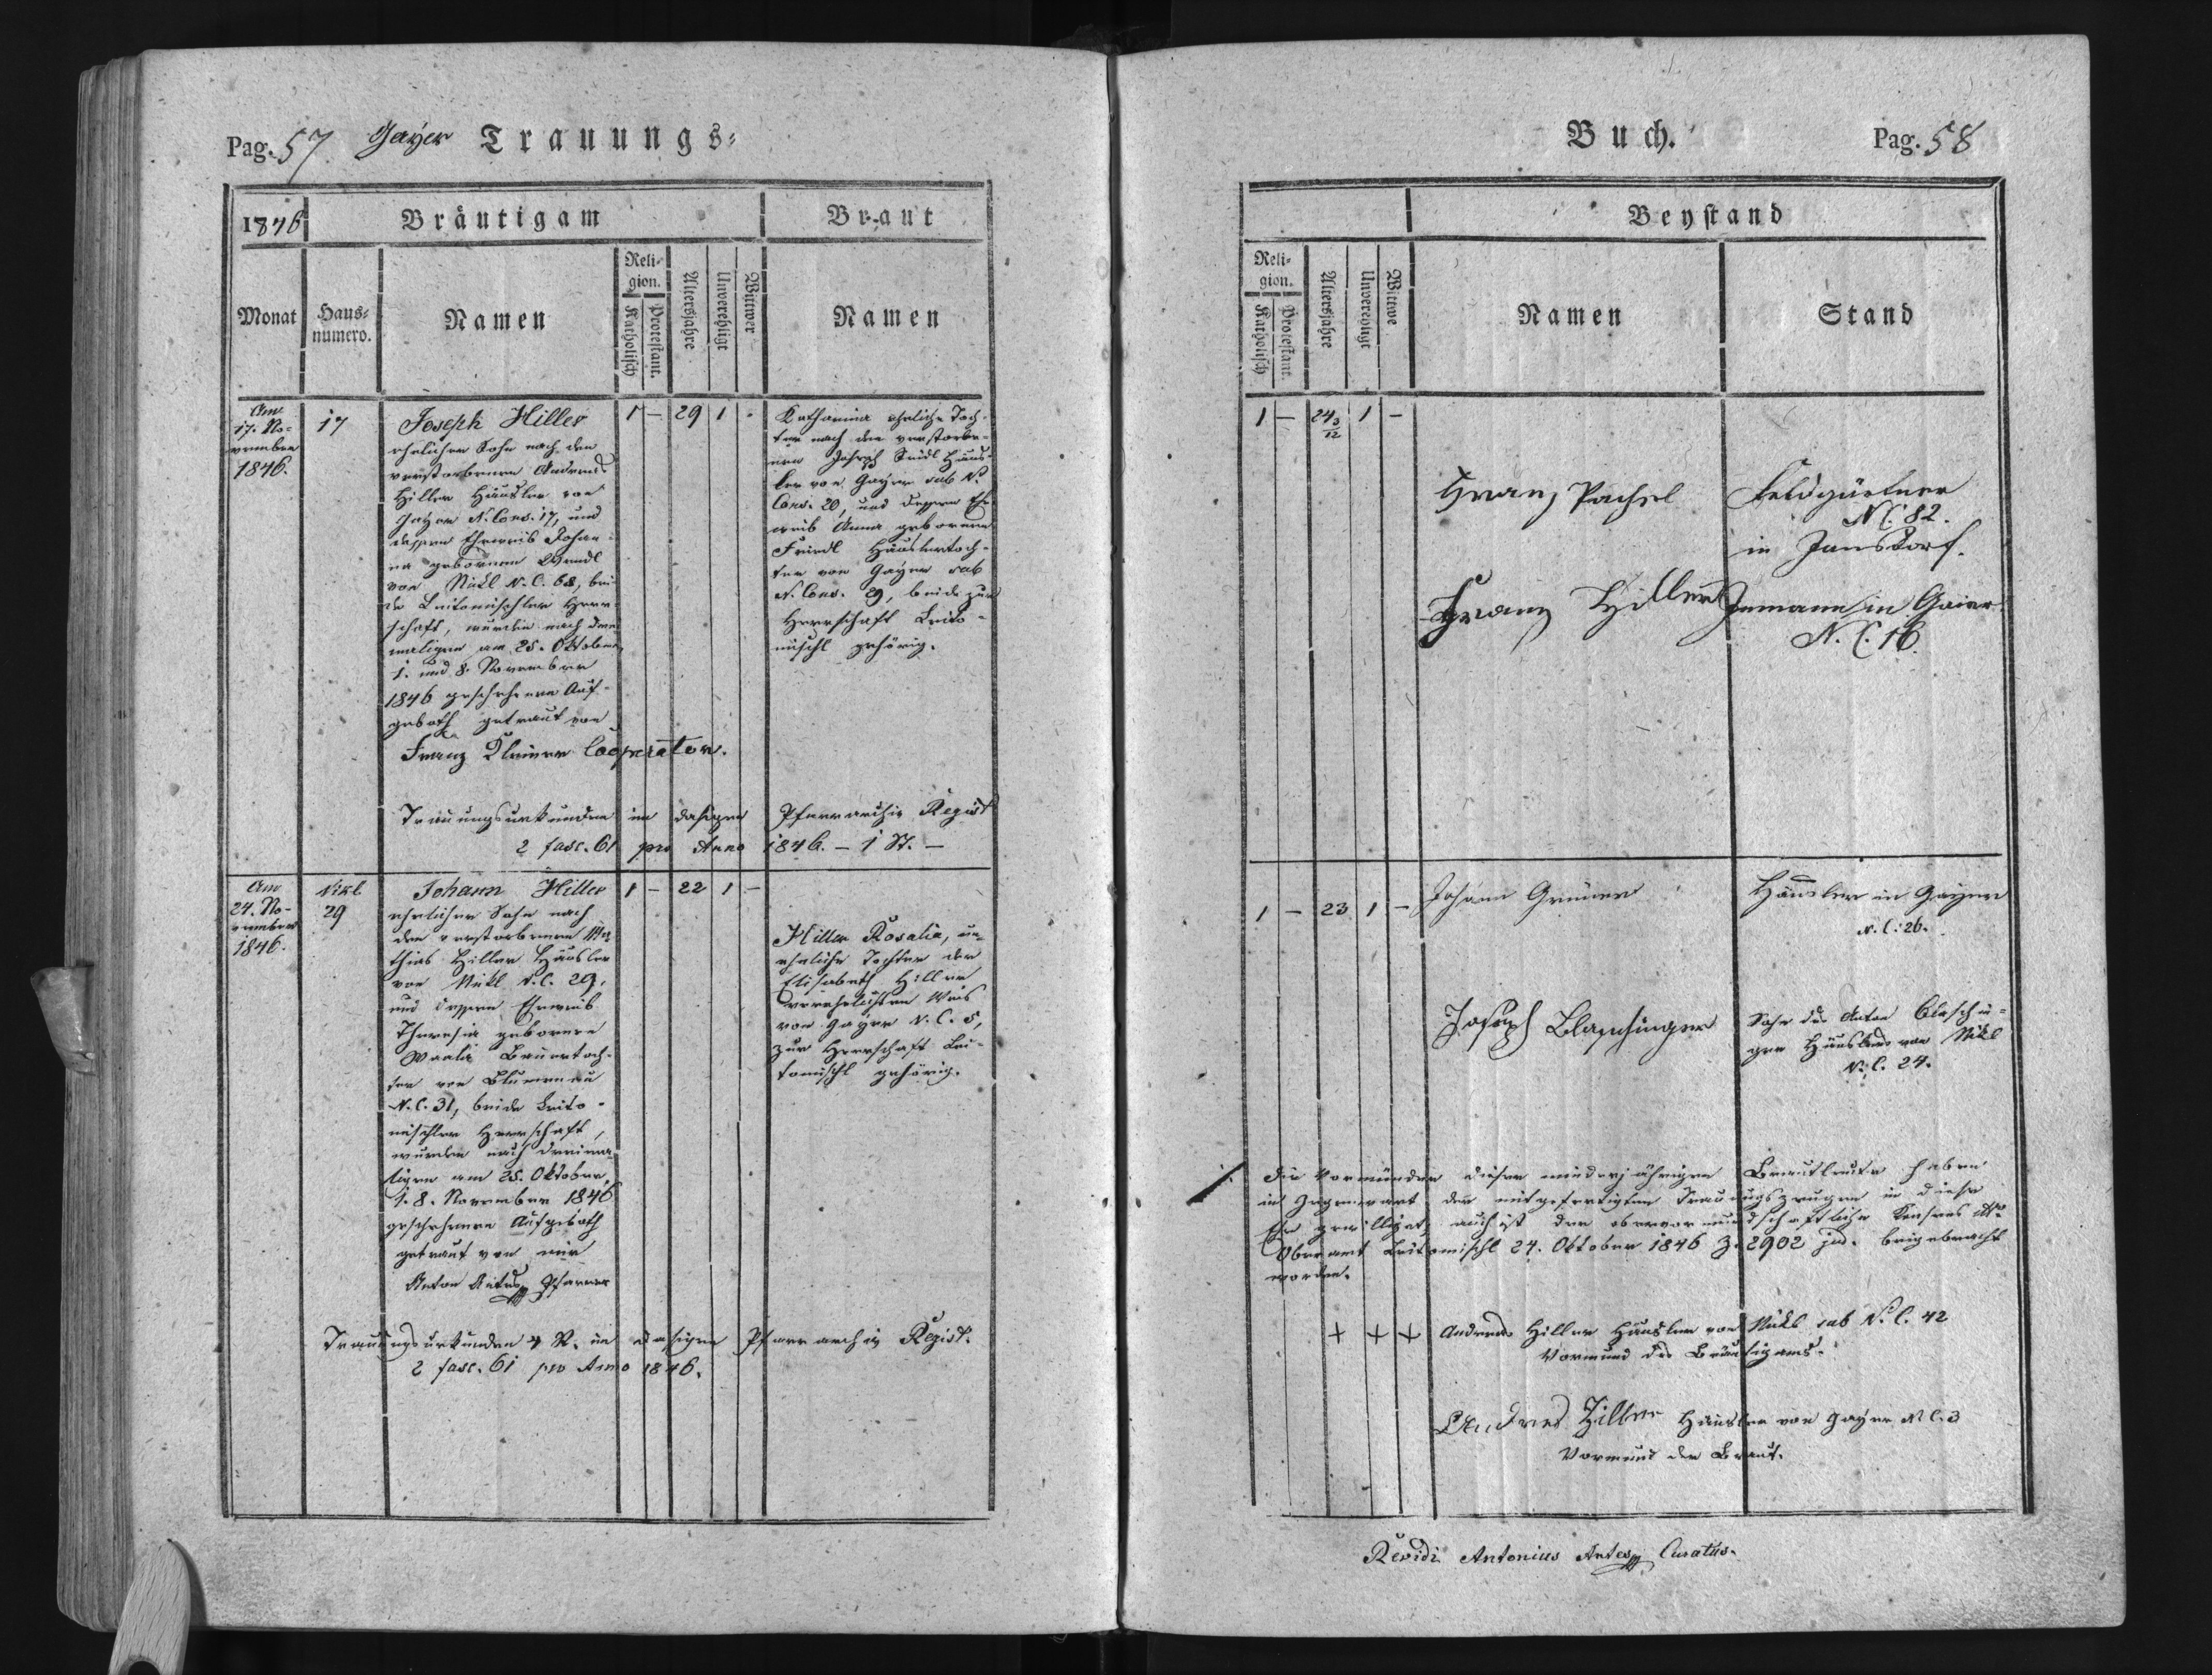 Pag. 57 Gayer Trauungs-
1846
Bräutigam
Braut
Monat
Haus-
numero.
Namen
Reli-
gion.
Katholisch
Protestant.
Altersjahre
Unverehligt
Wittwer
Namen
Am
17. No-
vember
1846.
17
Joseph Hiller
ehelicher Sohn nach dem
verstorbenen Andreas
Hiller Häusler von
Gayer N. Cons. 17, und
dessen Eheweib Johan-
na gebornen
von Nikl N. C. 68, bei-
de Leitomischler Herr-
schaft, wurden nach drei-
maligen am 25. Oktober,
1. und 8. November
1846 geschehenen Auf-
geboth getraut von
Franz Cooperator.
1 — 29 1 -
Katharina eheliche Toch-
ter nach dem verstorbe-
nen Joseph Seidl Häus-
ler von Gayer sub N.
Cons. 20, und dessen Ehe-
weib Anna geborene
Friedl Häuslertoch-
ter von Gayer sub
N. Cons. 29, beide zur
Herrschaft Leito-
mischl gehörig.
Trauungsurkunden im dasigen Pfarrarchiv Regist
2 fasc. 61 pro Anno 1846. — 1 St. —
Am
24. No-
vember
1846.
Nikl
29
Johann Hiller
ehelicher Sohn nach
dem verstorbenen Ma-
thias Hiller Häusler
von Nikl N. C. 29.
und dessen Eheweib
Theresia geborene
Bauertoch-
ter von Blumenau
N. C. 31, beide Leito-
mischler Herrschaft,
wurden nach dreima-
ligen am 25. Oktober,
1. 8. November 1846
geschehenen Aufgeboth
getraut von mir
Anton Pfarrer
1 — 22 1 —
Hiller Rosalia, un-
eheliche Tochter der
Elisabeth Hiller
verehelichten Weis
von Gayer N. C. 5,
zur Herrschaft Lei-
tomischl gehörig.
Trauungsurkunden 4 St. im dasigen Pfarrarchiv Regist.
2 fasc. 61 pro Anno 1846.
Buch. Pag. 58
Beystand
Reli-
gion.
Katholisch
Protestant.
Altersjahre
Unverehligt
Wittwe
Namen
Stand
1 — 24 3/12 1 —
Franz Pachsel
Feldgärtner
N C. 82.
in Jansdorf.
Franz Hiller
Inmann in Gaier
N. C. 16
1 — 23 1 —
Johann Gruner
Häusler in Gayer
N. C. 26.
Joseph Blaschinger
Sohn des Anton Blaschin-
ger Häuslers von Nikl
N. C. 24.
Die Vormünder dieser minderjährigen Brautleute haben
in Gegenwart der mitgefertigten Trauungszeugen in diese
Ehe gewilliget, auch ist der obervormundschaftliche Konsens
Oberamt Leitomischl 24. Oktober 1846 Z. 2902 jud. beigebracht
worden.
+ + + Andreas Hiller Häusler von Nikl sub N. C. 42
Vormund des Bräutigams.
Andres Hiller Häusler von Gayer N C. 3
Vormund der Braut.
Revidi Antonius Curatus.